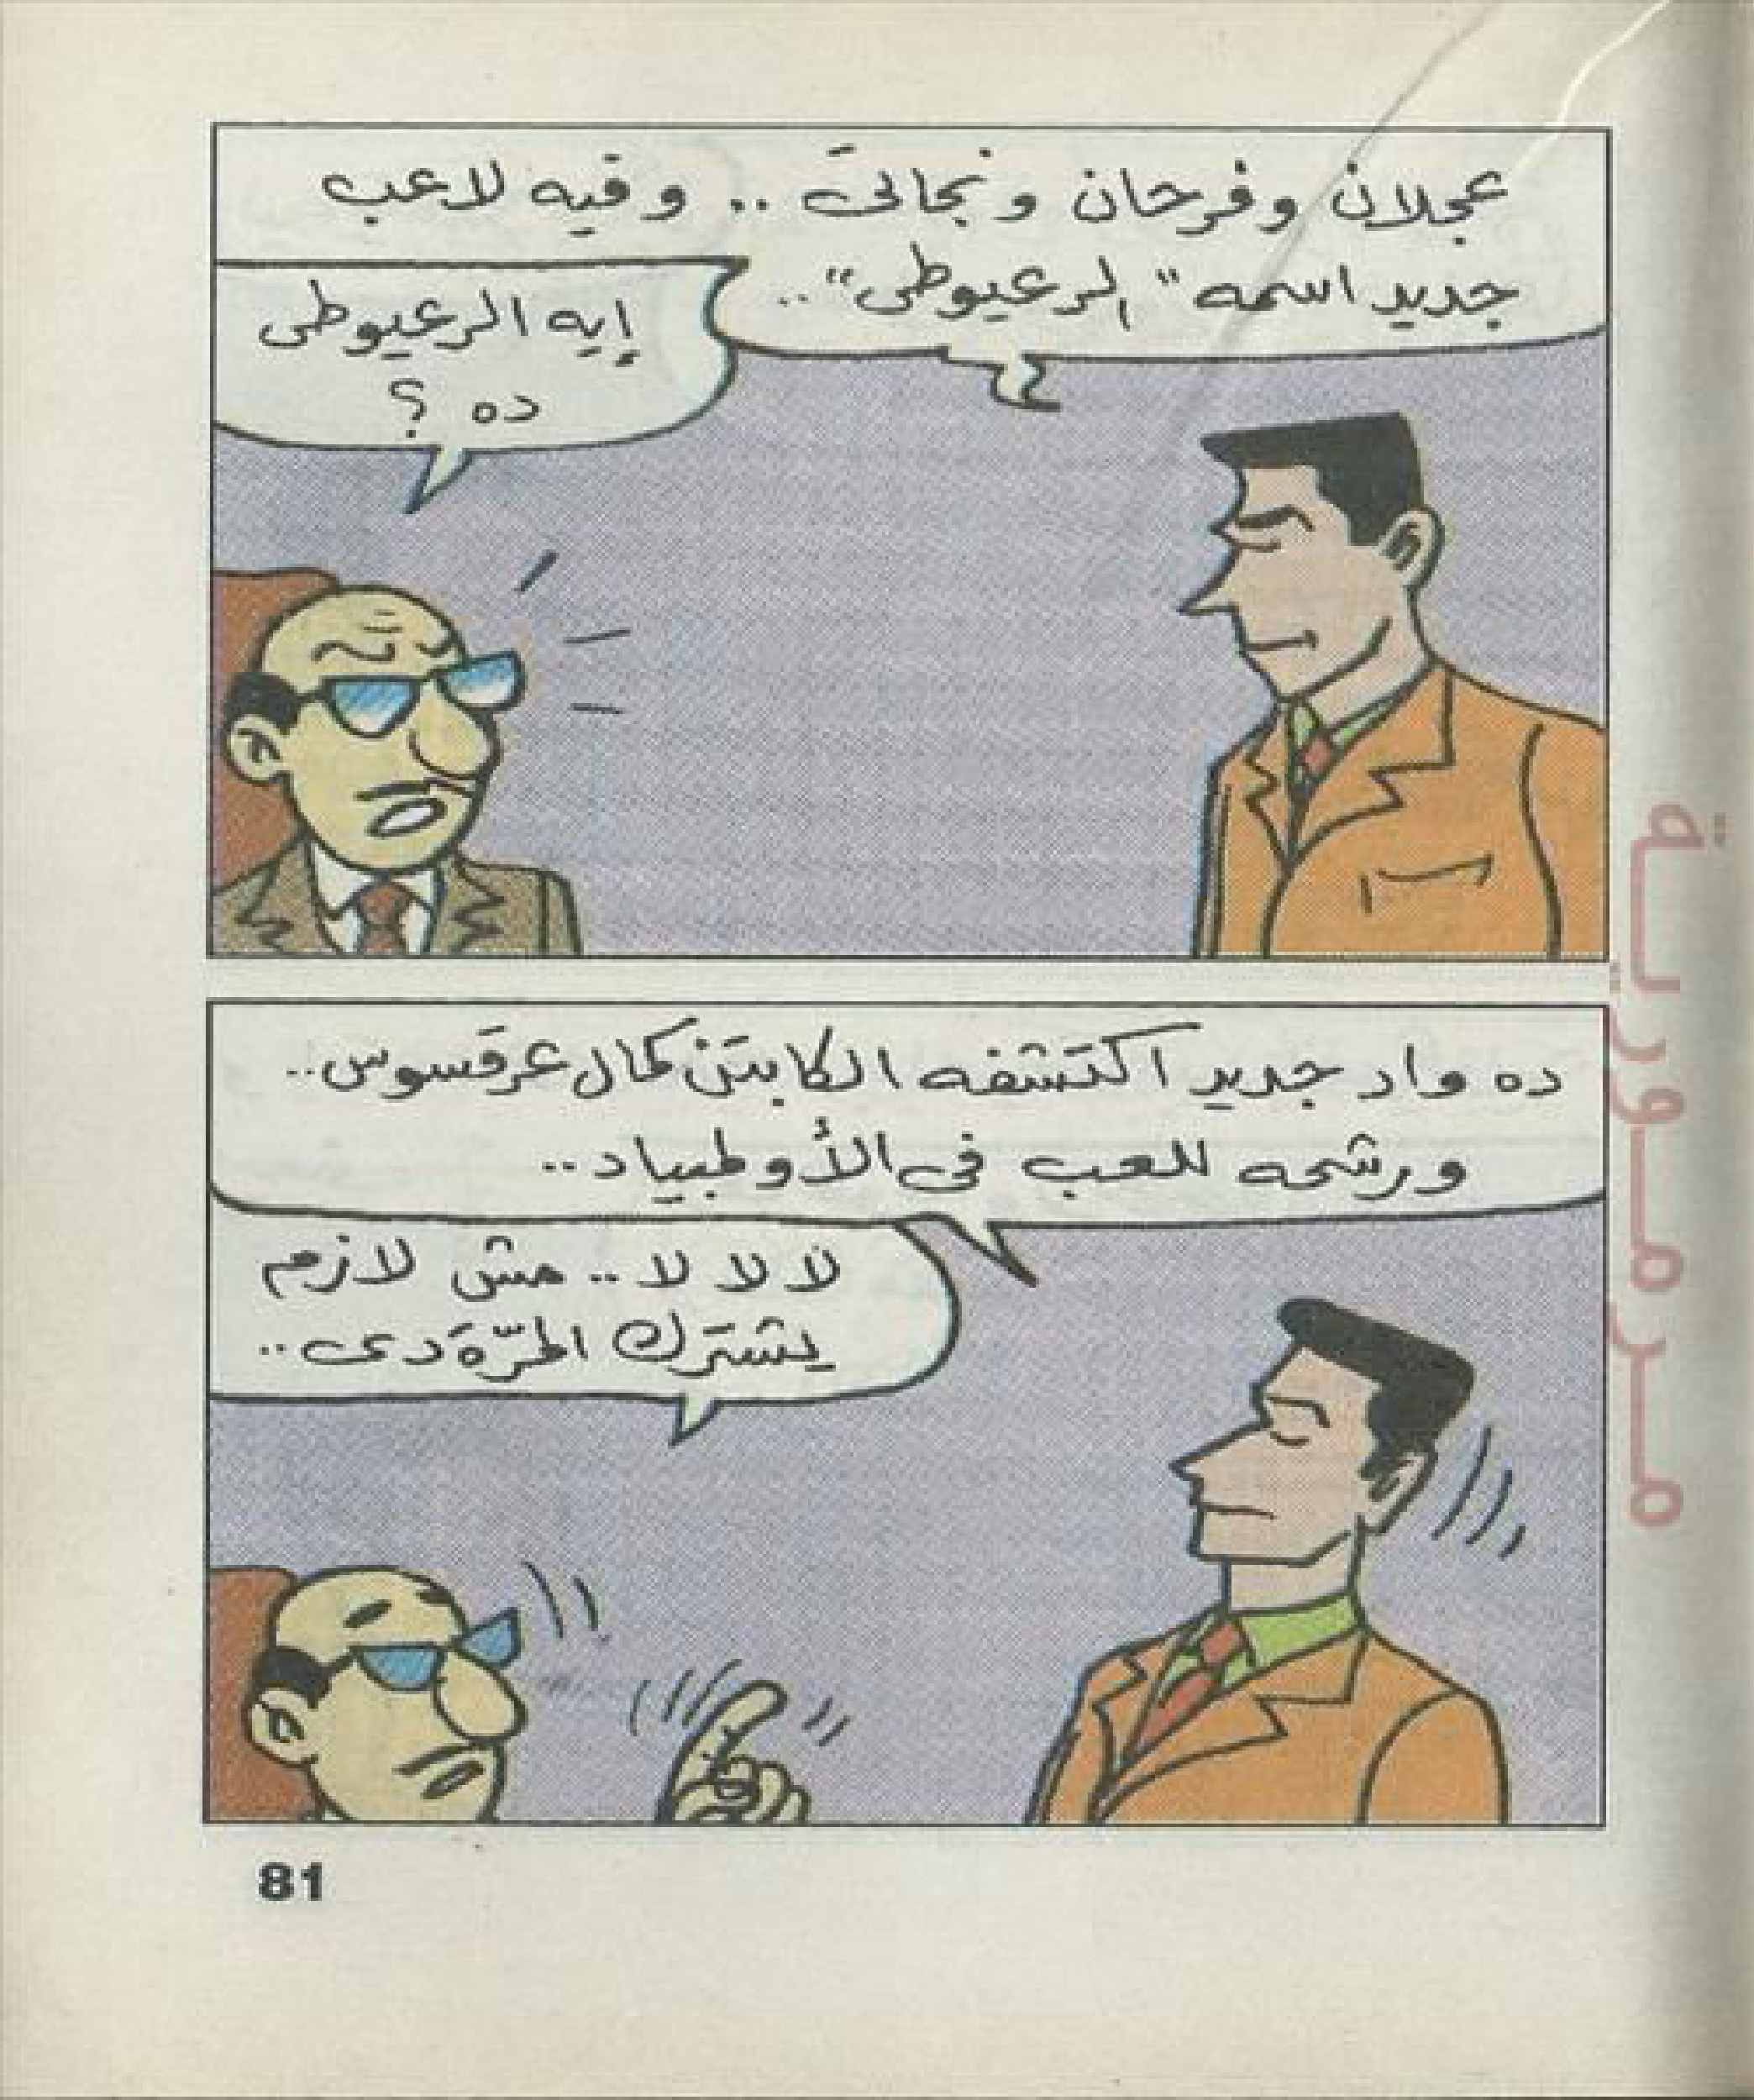 عجلان وفرحان ونجاتى .. وفيه لاعب
جديد اسمه "الرعيوطى"..
إيه الرعيوطى
ده ؟
ده واد جديد اكتشفه الكابتن كمال عرقسوس..
ورشحه للعب فى الأولمبياد..
لا لا لا .. مش لازم
يشترك المرّة دى..
مرمورية
81